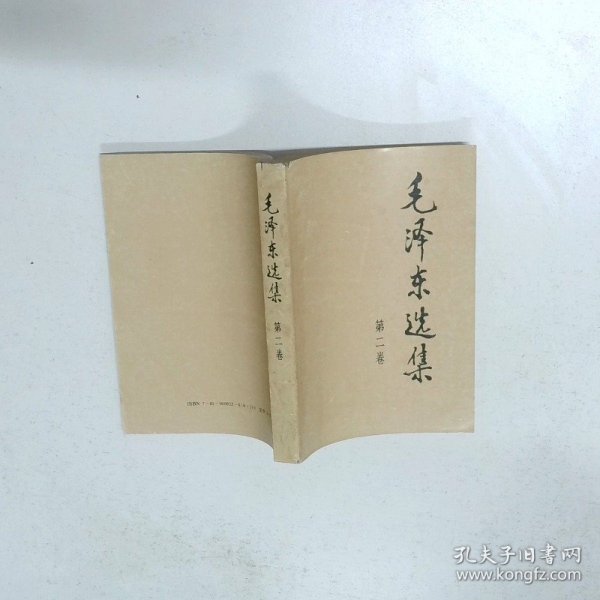 毛泽东选集
第二卷
毛泽东选集
第二卷
孔夫子旧书网
www.kongfz.com